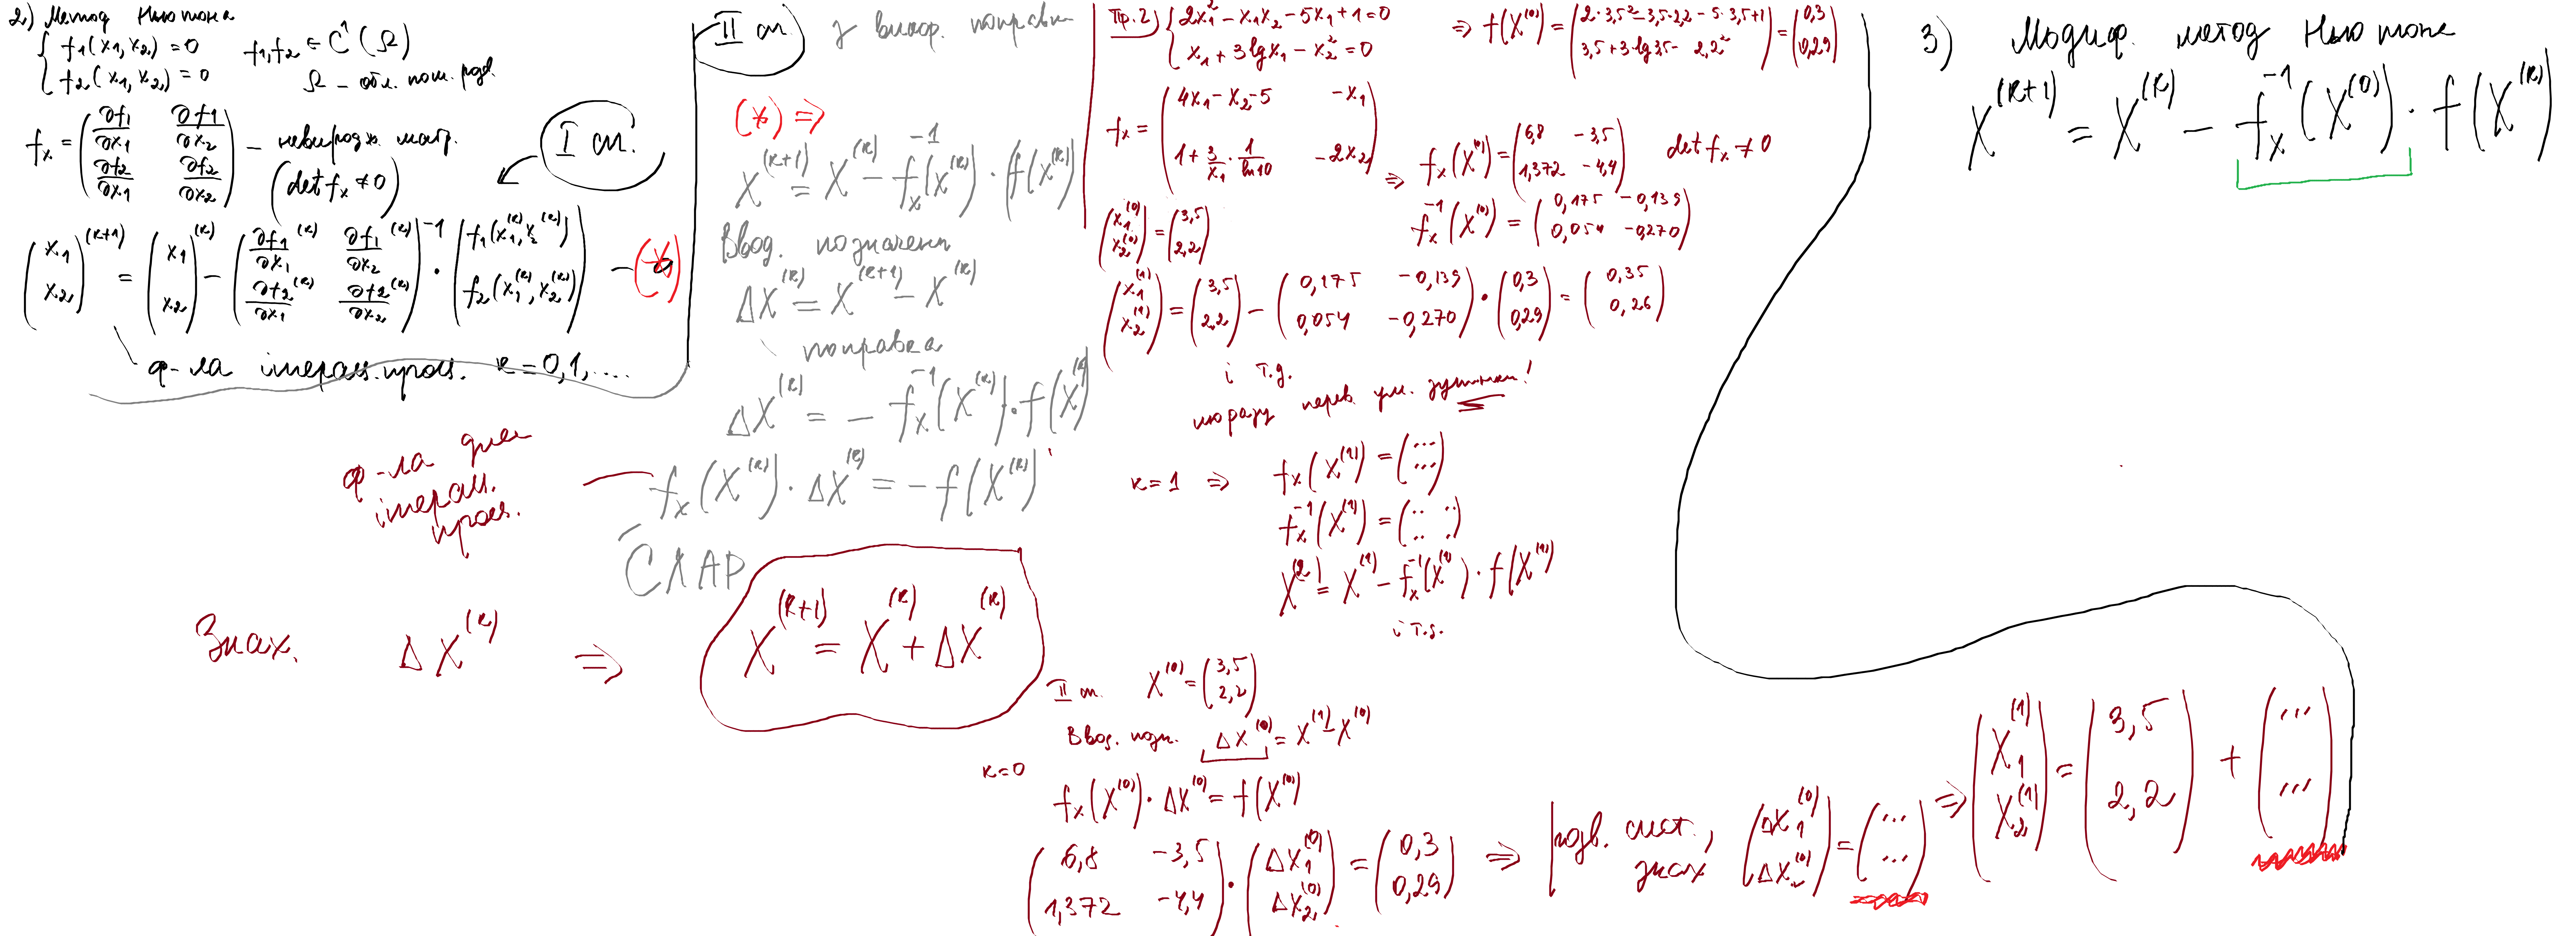 2) Метод Ньютона
{ f₁(x₁,x₂) = 0
f₂(x₁,x₂) = 0
f₁,f₂ ∈ C¹(Ω)
Ω – обл.
fₓ = (∂f₁/∂x₁ ∂f₁/∂x₂
∂f₂/∂x₁ ∂f₂/∂x₂) – невиродж. матр.
(det fₓ ≠ 0)
I сп.
(x₁ x₂)^(k+1) = (x₁ x₂)^(k) – (∂f₁/∂x₁^(k) ∂f₁/∂x₂^(k)
∂f₂/∂x₁^(k) ∂f₂/∂x₂^(k))^-1 · (f₁(x₁^(k), x₂^(k))
f₂(x₁^(k), x₂^(k))) – (*)
ф-ла ітерац. проц. k = 0,1,....
II сп. з викор. поправки
(*) ⇒
X^(k+1) = X^(k) – fₓ^-1(X^(k)) · f(X^(k))
Ввод. позначення
ΔX^(k) = X^(k+1) – X^(k)
поправка
ΔX^(k) = – fₓ^-1(X^(k)) · f(X^(k))
fₓ(X^(k)) · ΔX^(k) = – f(X^(k))
ф-ла для
ітерац.
проц.
СЛАР
Знах. ΔX^(k) ⇒ X^(k+1) = X^(k) + ΔX^(k)
Пр. 2) { 2x₁² – x₁x₂ – 5x₁ + 1 = 0
x₁ + 3 lg x₁ – x₂² = 0
⇒ f(X^(0)) = (2·3,5² – 3,5·2,2 – 5·3,5 + 1
3,5 + 3 lg 3,5 – 2,2²) = (0,3
0,29)
fₓ = (4x₁ – x₂ – 5 –x₁
1 + 3/x₁ · 1/ln 10 –2x₂)
⇒ fₓ(X^(0)) = (6,8 –3,5
1,372 –4,4) det fₓ ≠ 0
(x₁^(0)
x₂^(0)) = (3,5
2,2)
fₓ^-1(X^(0)) = (0,175 –0,139
0,054 –0,270)
(x₁^(1)
x₂^(1)) = (3,5
2,2) – (0,175 –0,139
0,054 –0,270) · (0,3
0,29) = (0,35
0,26)
і т.д.
щоразу перев. ум. зупинки!
k = 1 ⇒ fₓ(X^(1)) = (...
...)
fₓ^-1(X^(1)) = (.. ..
.. ..)
X^(2) = X^(1) – fₓ^-1(X^(1)) · f(X^(1))
і т.д.
II сп. X^(0) = (3,5
2,2)
Ввод. позн. ΔX^(0) = X^(1) – X^(0)
k = 0
fₓ(X^(0)) · ΔX^(0) = f(X^(0))
(6,8 –3,5
1,372 –4,4) · (ΔX₁^(0)
ΔX₂^(0)) = (0,3
0,29) ⇒ розв. сист.,
знах (ΔX₁^(0)
ΔX₂^(0)) = (...
...) ⇒ (X₁^(1)
X₂^(1)) = (3,5
2,2) + (...
...)
3) Модиф. метод Ньютона
X^(k+1) = X^(k) – fₓ^-1(X^(0)) · f(X^(k))